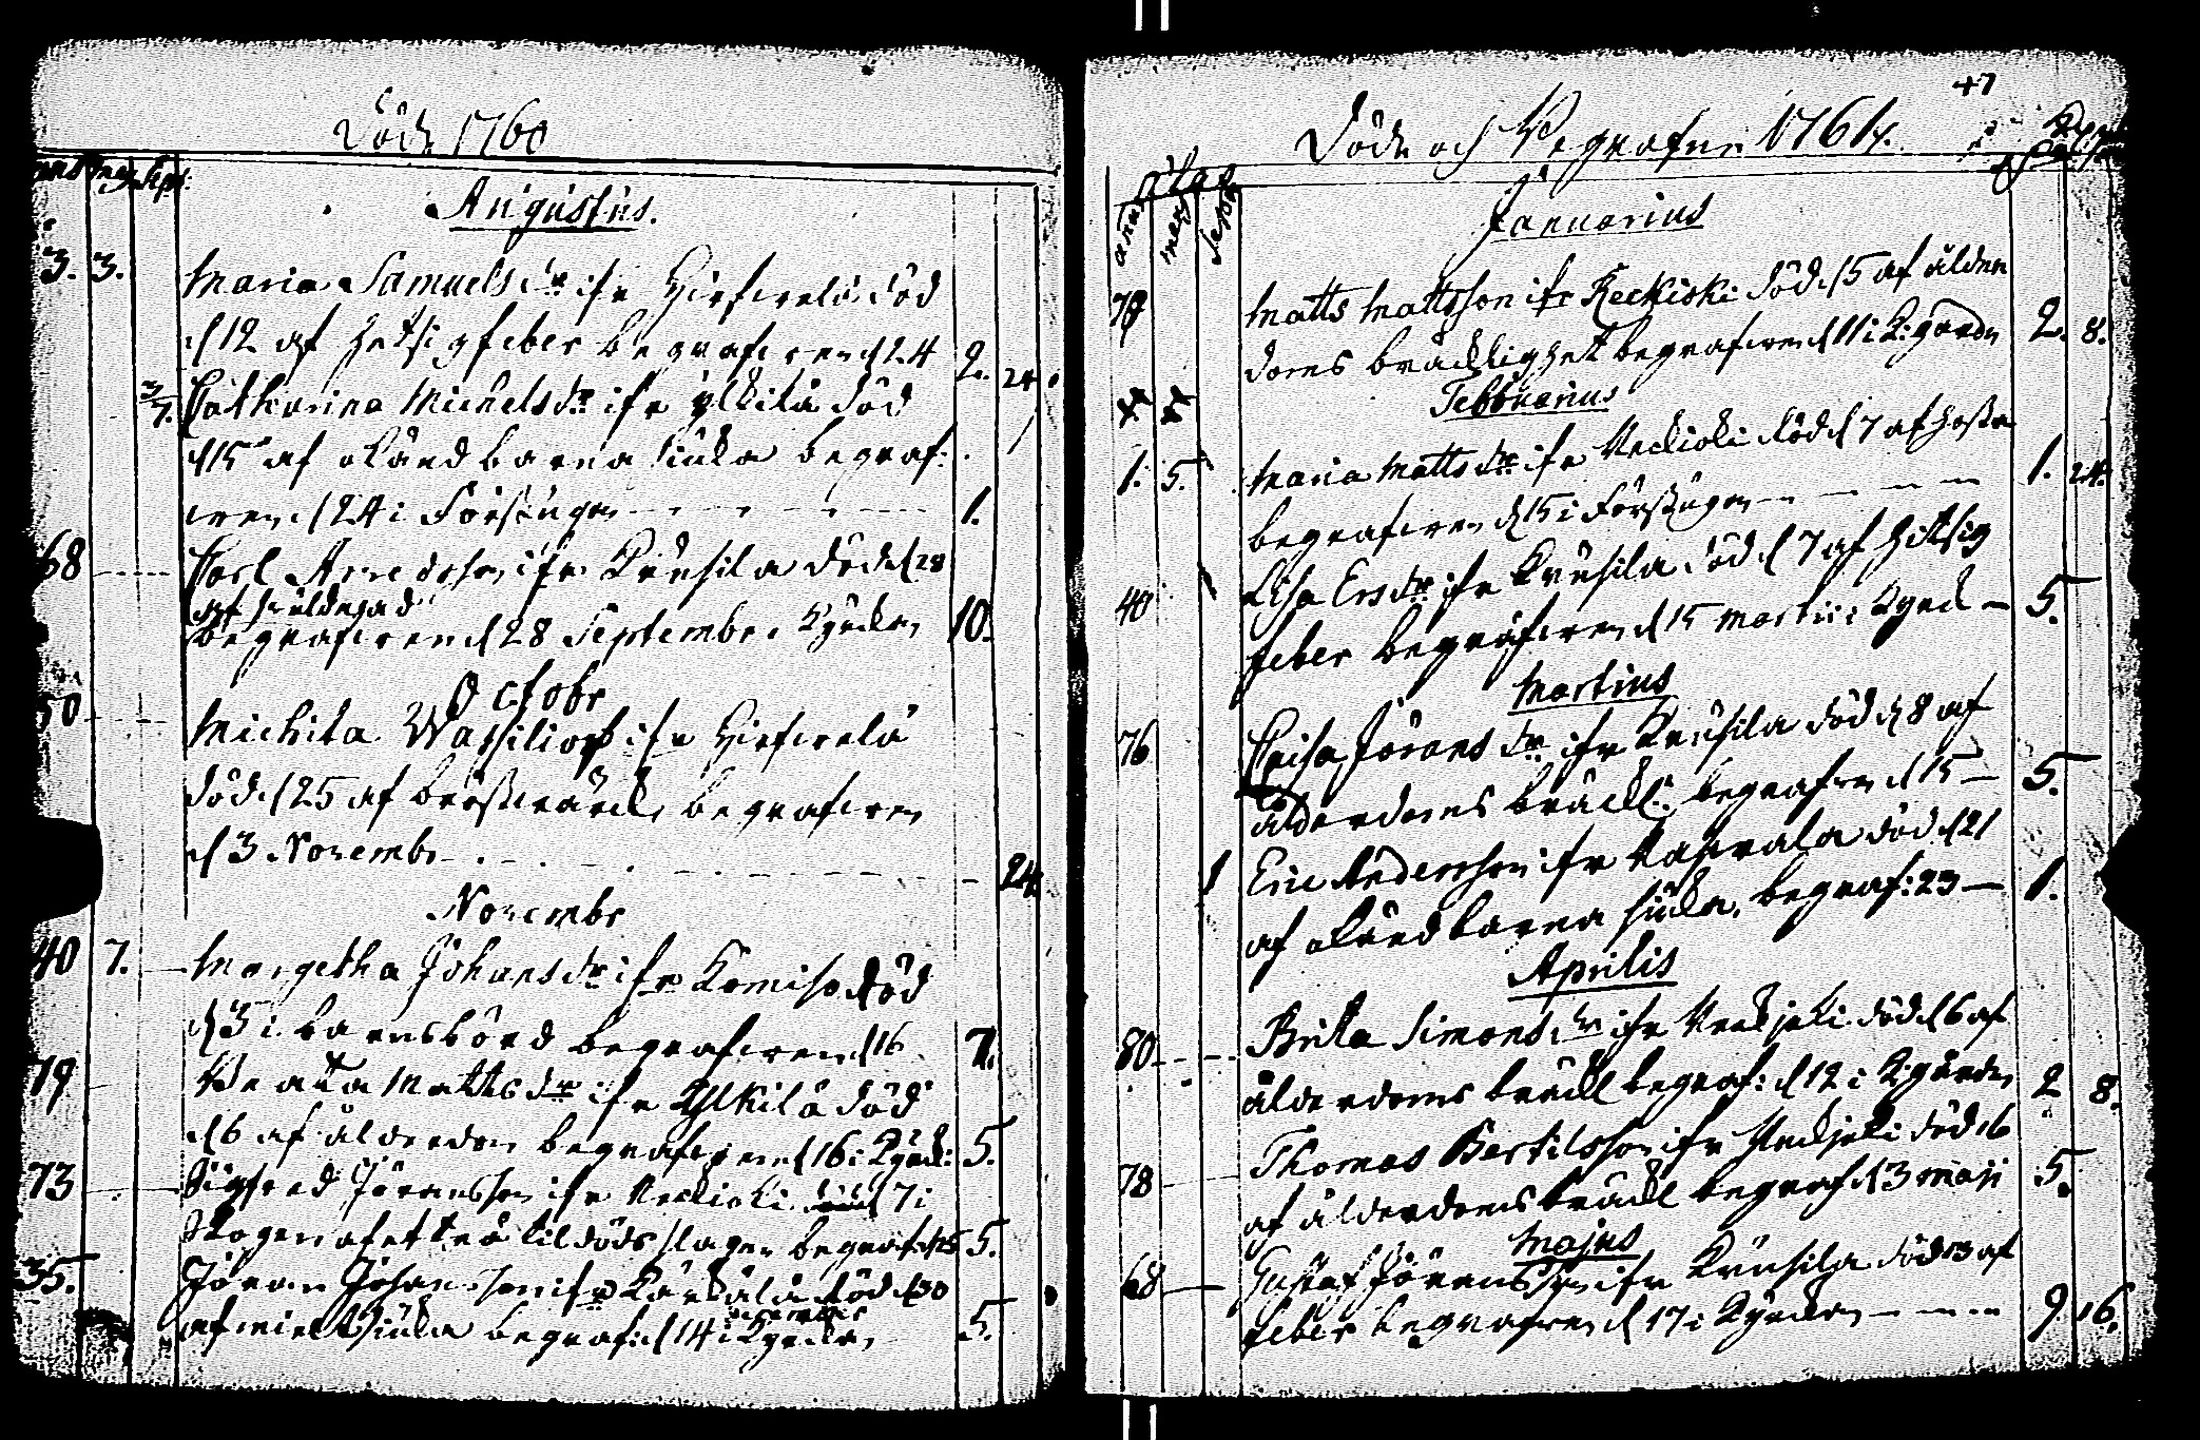 Döde 1760
Augustus.
3. 3. Maria Samuels dr ifr Hirfvelä död
d 12 af hetsig feber begrafven d 24 2. 24
3/7. Catharina Michels dr ifr Ylkilä död
d 15 af okänd barna siuka begraf:
ven d 24 i Församl 1.
68 Carl ifr Kruusila död d 28
af
begrafven d 28 Septembr. Kgården 10.
Octobr
50 Michita Wassilioff ifr Hirfvelä
död d 25 af bröstvärck, begrafven
d 3 Novembr 24
Novembr
40 7. Margetha Johans dr ifr Komiso död
d 3 i barnsbörd begrafven d 16 7.
79 Beata Matts dr ifr Ylkilä död
d 6 af ålderdom begrafven d 16 i Kgård: 5.
73 Sigfred Jöransson ifr Veckioki d 7 i
skogen af ett trä til döds slagen begraf: d 5.
35. Jöran Johansson ifr Kärkälä död d 30
af siuka begraf: d 14 i Kgården 5.
47
Döde och Begrafne 1761.
ann mens sept
Januarius
78 Matts Mattsson ifr Reckiski död d 5 af ålder
doms bräcklighet begrafven d 11 i K:gården 2. 8.
Februarius
1. 5. Maria Matts dr ifr Veckioki död d 7 af hosta
begrafven d 15 i 1. 24.
40 Lisa Ers dr ifr Kruusila död d 7 af hitsig
feber begrafven d 15 Martii i Kgård 5.
Martius
76 Caisa Jörans dr ifr Kruusila död d 8 af
ålderdoms bräckl: begrafven d 15 5.
1 Eric Andersson ifr Kaprala död d 21
af okänd barna siuka, begraf: 23 1.
Aprilis
80 Brita Simons dr ifr Veckjoki död d 6 af
ålderdoms bräckl begraf: d 12 i K:gården 2 8.
78 Thomas Bertilsson ifr Veckjoki död 16
af ålderdoms bräckl begraf d 3 maji 5.
Majus
68 Gustaf Jöransson ifr Kruusila död 13 af
feber begrafven d 17 i Kgården 9. 16.